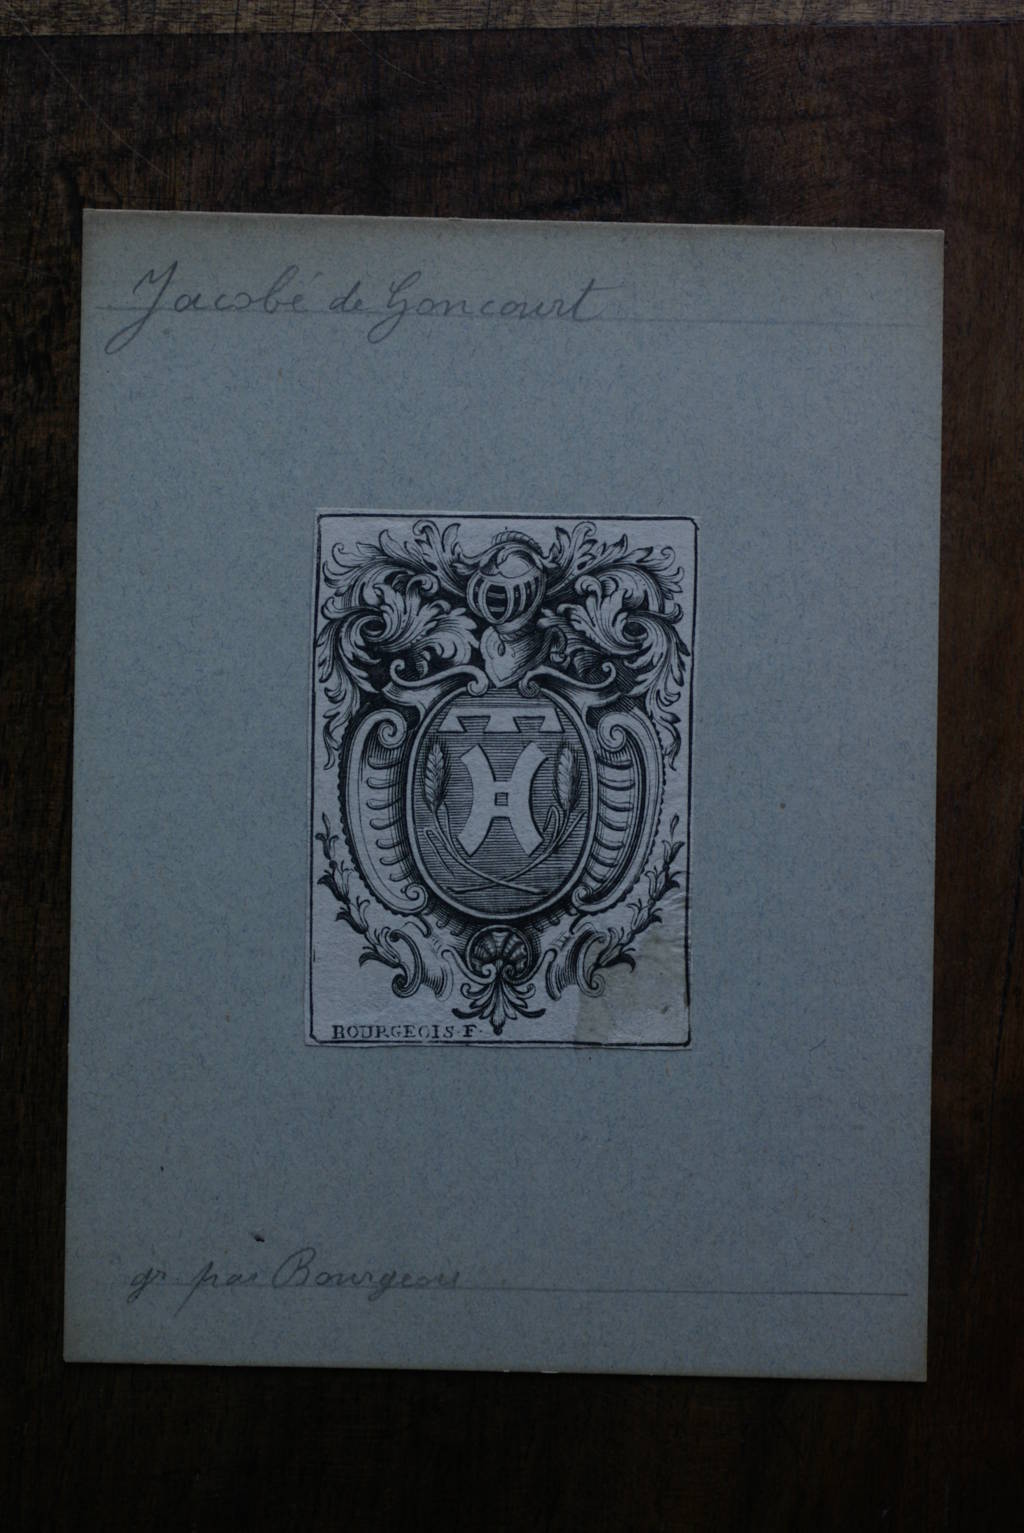 Jacobé de Goncourt
BOURGEOIS·F·
gr. par Bourgeois